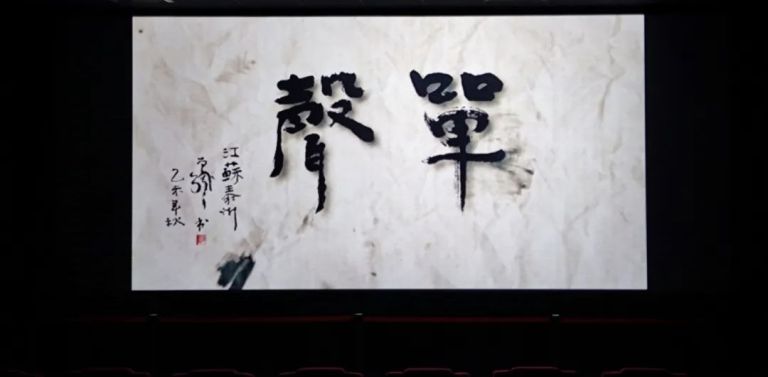 單聲
江蘇泰州
書
乙未年秋